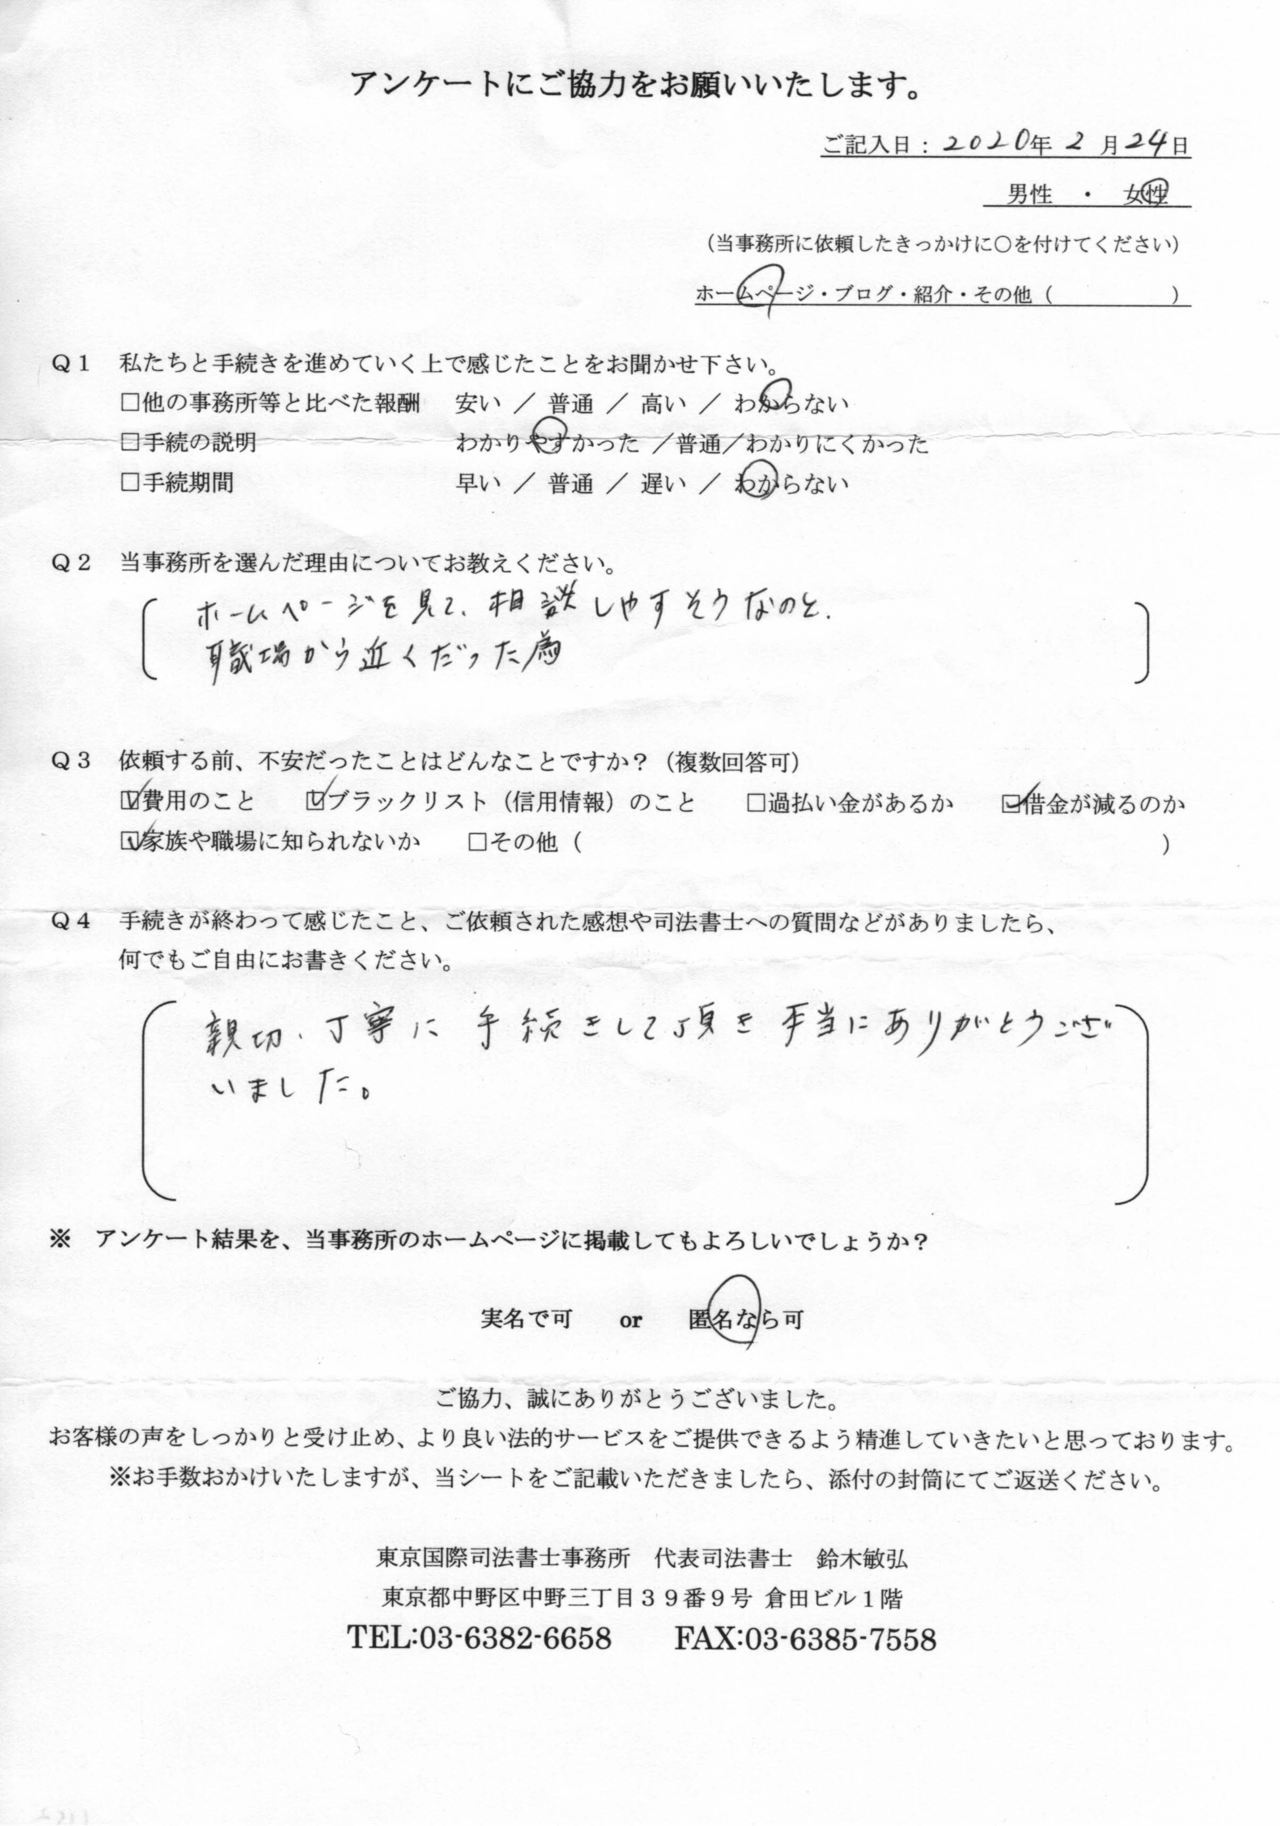 アンケートにご協力をお願いいたします。
ご記入日：2020年 2 月24日
男性 ・ 女性
（当事務所に依頼したきっかけに○を付けてください）
ホームページ・ブログ・紹介・その他（ ）
Ｑ１ 私たちと手続きを進めていく上で感じたことをお聞かせ下さい。
□他の事務所等と比べた報酬 安い ／ 普通 ／ 高い ／ わからない
□手続の説明 わかりやすかった ／普通／わかりにくかった
□手続期間 早い ／ 普通 ／ 遅い ／ わからない
Ｑ２ 当事務所を選んだ理由についてお教えください。
ホームページを見て、相談しやすそうなのと、
職場から近くだった為
Ｑ３ 依頼する前、不安だったことはどんなことですか？（複数回答可）
☑費用のこと ☑ブラックリスト（信用情報）のこと □過払い金があるか ☑借金が減るのか
☑家族や職場に知られないか □その他（ ）
Ｑ４ 手続きが終わって感じたこと、ご依頼された感想や司法書士への質問などがありましたら、
何でもご自由にお書きください。
親切、丁寧に 手続きをして頂き 本当にありがとうござ
いました。
※ アンケート結果を、当事務所のホームページに掲載してもよろしいでしょうか？
実名で可 or 匿名なら可
ご協力、誠にありがとうございました。
お客様の声をしっかりと受け止め、より良い法的サービスをご提供できるよう精進していきたいと思っております。
※お手数おかけいたしますが、当シートをご記載いただきましたら、添付の封筒にてご返送ください。
東京国際司法書士事務所 代表司法書士 鈴木敏弘
東京都中野区中野三丁目３９番９号 倉田ビル１階
TEL:03-6382-6658 FAX:03-6385-7558